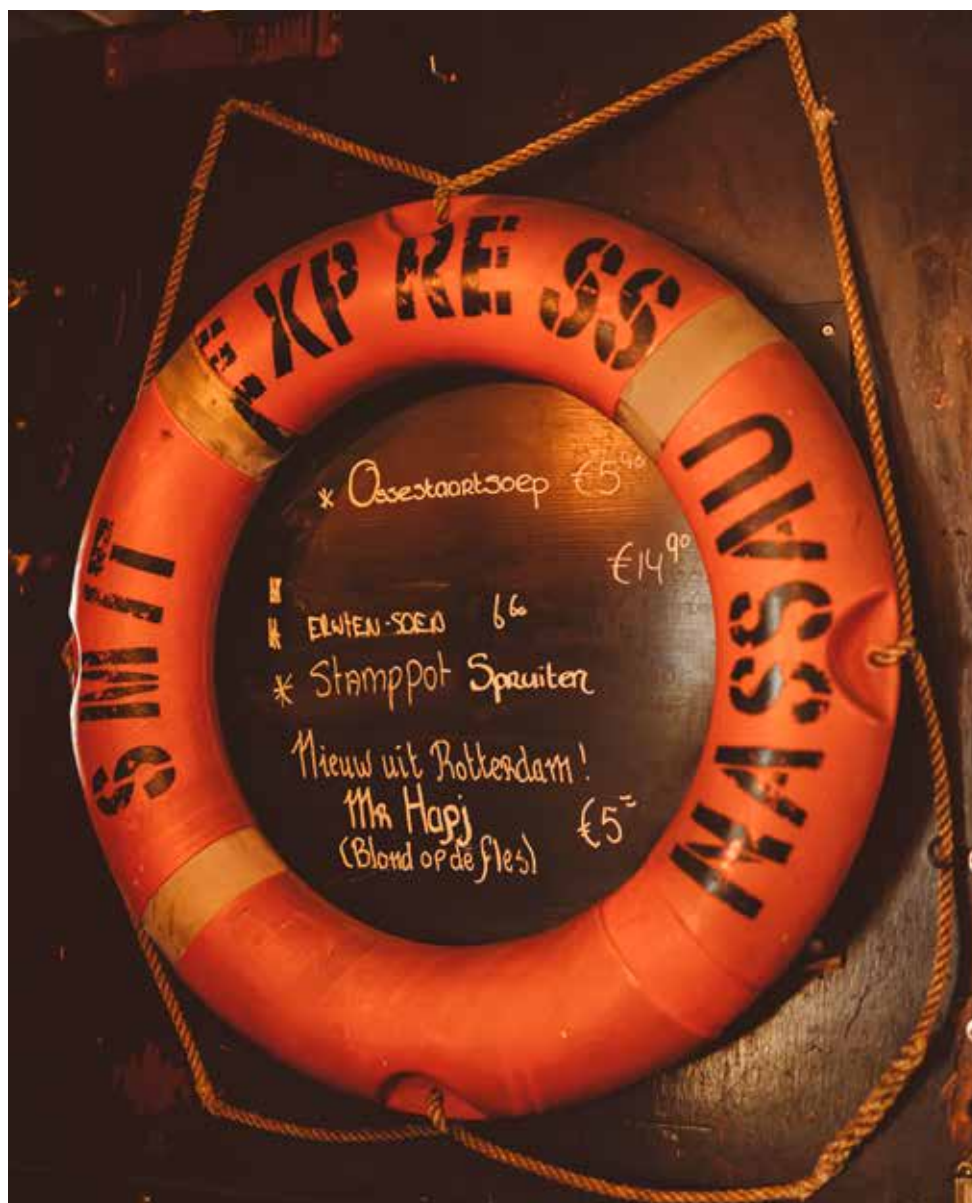 SMIT
EXPRESS
NASSAU
* Ossestaartsoep €5⁴⁰
€14⁹⁰
* ERWTEN-SOEP 6⁶⁰
* Stamppot Spruiten
Nieuw uit Rotterdam!
Mr Hapj €5⁼
(Blond op de fles)